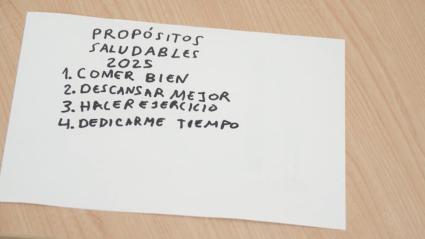 PROPÓSITOS
SALUDABLES
2025
1. COMER BIEN
2. DESCANSAR MEJOR
3. HACER EJERCICIO
4. DEDICARME TIEMPO